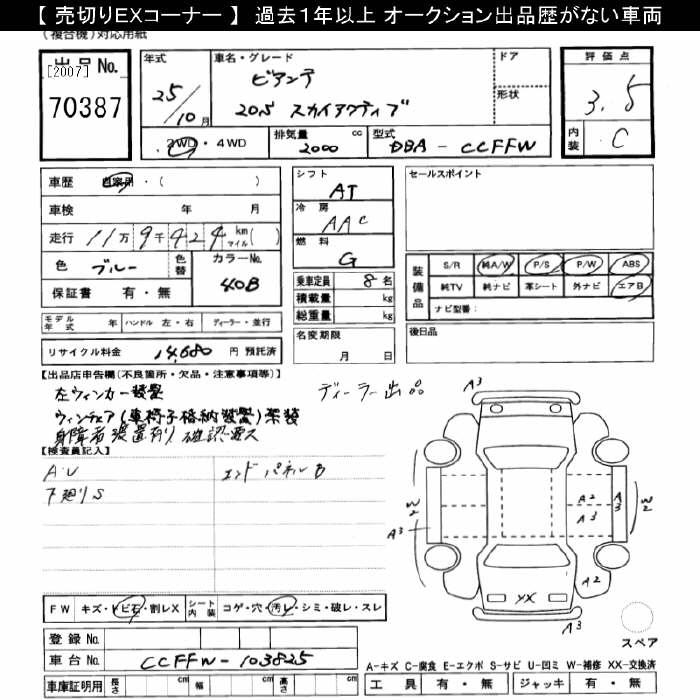 【 売切りEXコーナー 】 過去１年以上 オークション出品歴がない車両
(複合機)対応用紙
出品No. [2007] 70387
年式 25/10月
車名・グレード ビアンテ 20S スカイアクティブ
ドア 形状
評価点 3.5
内装 C
2WD・4WD 排気量 2000 cc 型式 DBA - CCFFW
車歴 自家用・( )
車検 年 月
走行 11万9千424 km マイル( )
色 ブルー 色替 カラーNo. 40B
保証書 有・無
シフト AT
冷房 AAC
燃料 G
乗車定員 8名
積載量 kg
総重量 kg
名変期限 月 日
セールスポイント
装備品 S/R 純A/W P/S P/W ABS
純TV 純ナビ 革シート 外ナビ エアB
ナビ型番：
後日品
モデル年式 年 ハンドル 左・右 ディーラー・並行
リサイクル料金 14,680 円 預託済
【出品店申告欄(不良箇所・欠品・注意事項等)】
左ウィンカー装置
ディーラー出品
ウィンチェア(車椅子格納装置)架装
身障者装置有り 確認要ス
【検査員記入】
A・U エンドパネルB
下廻りS
A3
A2
A3
A3
W2
W2
A3
A2
YX
A3
スペア
FW キズ・トビ石・割レX シート内装 コゲ・穴・汚レ・シミ・破レ・スレ
登録No.
車台No. CCFFW-103825
車庫証明用 長さ cm 幅 cm 高さ cm
A-キズ C-腐食 E-エクボ S-サビ U-凹ミ W-補修 XX-交換済
工具 有・無 ジャッキ 有・無